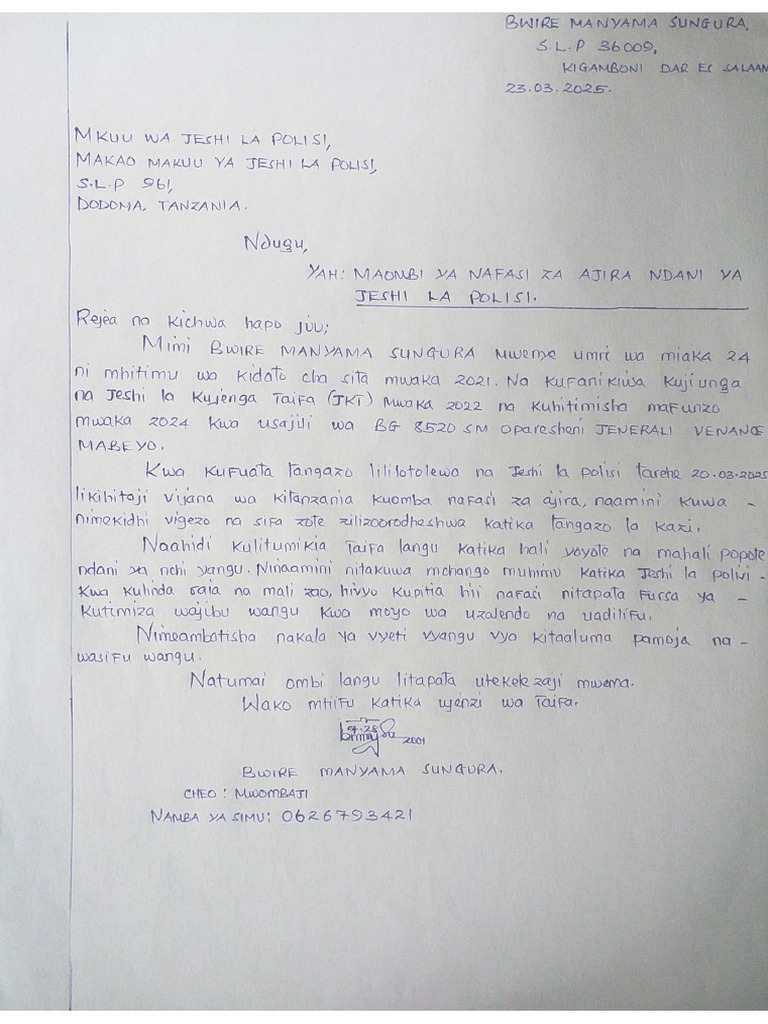 BWIRE MANYAMA SUNGURA,
S.L.P 36009,
KIGAMBONI DAR ES SALAAM
23.03.2025.
MKUU WA JESHI LA POLISI,
MAKAO MAKUU YA JESHI LA POLISI,
S.L.P 961,
DODOMA, TANZANIA.
Ndugu,
YAH: MAOMBI YA NAFASI ZA AJIRA NDANI YA
JESHI LA POLISI.
Rejea na kichwa hapo juu;
Mimi BWIRE MANYAMA SUNGURA mwenye umri wa miaka 24
ni mhitimu wa kidato cha sita mwaka 2021. Na kufanikiwa kujiunga
na Jeshi la Kujenga Taifa (JKT) mwaka 2022 na kuhitimisha mafunzo
mwaka 2024 kwa usajili wa BG 8520 SM Oparesheni JENERALI VENANCE
MABEYO.
Kwa kufuata tangazo lililotolewa na Jeshi la polisi tarehe 20.03.2025
likihitaji vijana wa kitanzania kuomba nafasi za ajira, naamini kuwa -
nimekidhi vigezo na sifa zote zilizoorodheshwa katika tangazo la kazi.
Naahidi kulitumikia Taifa langu katika hali yoyote na mahali popote
ndani ya nchi yangu. Ninaamini nitakuwa mchango muhimu katika Jeshi la polisi -
kwa kulinda raia na mali zao, hivyo kupitia hii nafasi nitapata fursa ya -
kutimiza wajibu wangu kwa moyo wa uzalendo na uadilifu.
Nimeambatisha nakala ya vyeti vyangu vya kitaaluma pamoja na -
wasifu wangu.
Natumai ombi langu litapata utekelezaji mwema.
Wako mtiifu katika ujenzi wa Taifa.
2001
BWIRE MANYAMA SUNGURA.
CHEO: MWOMBAJI
NAMBA YA SIMU: 0626793421